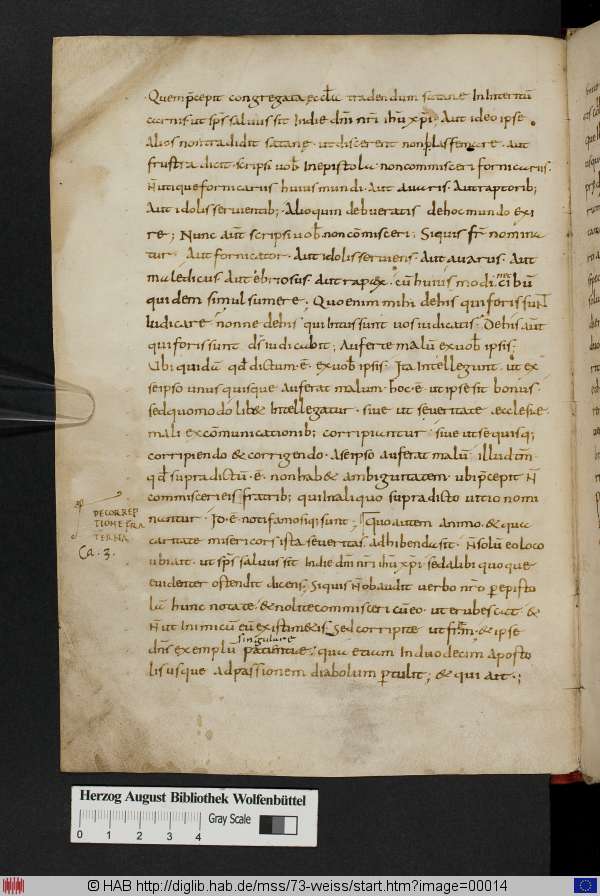 Quem p̄cepit congregata eccl̄a tradendum satanae In Interitū
carnis ut sp̄s saluus sit Indie dn̄i nr̄i ih̄u xp̄i. Aut ideo ipse
Alios non tradidit satanae. ut discerent non blasfemare. aut
frustra dicit. scripsi uob̄ In epistola non commisceri fornicariis.
N̄ utique fornicariis huius mundi. Aut auaris. Aut raptorib;
Aut idolis seruientib; Alioquin debueratis de hoc mundo exi
re; Nunc aut̄ scripsi uob̄ non cōmisceri; Siquis fr̄ nomina
tur. Aut fornicator. Aut idolis seruiens. Aut auarus. Aut
maledicus. Aut ebriosus. Aut rapax. cū huius modi nec cibū
quidem simul sumere; Quo enim mihi de his qui foris sunt
Iudicare. nonne de his qui Intus sunt uos iudicatis; De his aut̄
qui foris sunt d̄s iudicabit; Auferte malū ex uob̄ ipsis;
Ubi quidā qd̄ dictum ē. ex uob̄ ipsis. Ita Intellegunt. ut ex
se ipso unus quisque auferat malum. hoc ē ut ipse sit bonus.
sed quomodo lib& Intellegatur. siue ut seueritate ecclesiae
mali excōmunicationib; corripiantur. siue ut se quisq;
corripiendo & corrigendo. A se ipso auferat malū illud tn̄
qd̄ supra dictū ē. non hab& ambiguitatem ubi p̄cepit N̄
commisceri eis fratrib; qui In aliquo supra dicto uitio nomi
nantur. Id ē noti famosiq; sunt; Quo autem animo & qua
caritate misericors ista seueritas adhibenda sit. N̄ solū eo loco
ubi ait. ut sp̄s saluus sit Indie dn̄i nr̄i ih̄u xp̄i. sed alibi quoque
euidenter ostendit dicens; Siquis N̄ obaudit uerbo nr̄o p̄ episto
lā hunc notate & nolite commisceri cū eo ut erubescat &
N̄ ut Inimicū eū existim&is; Sed corripite ut fr̄m. & ipse
dn̄s exemplū singulare patientiae; qua etiam In duodecim aposto
lis usque ad passionem diabolum p̄tulit; & qui ait.;
DE CORREP
TIONE FRA
TERNA
Ca. 3.
Herzog August Bibliothek Wolfenbüttel
0 1 2 3 4 Gray Scale
© HAB http://diglib.hab.de/mss/73-weiss/start.htm?image=00014